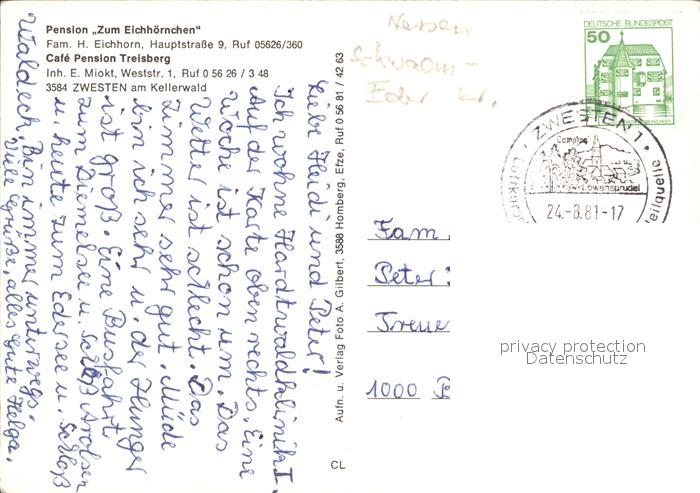 Pension „Zum Eichhörnchen"
Fam. H. Eichhorn, Hauptstraße 9, Ruf 05626/360
Café Pension Treisberg
Inh. E. Miokt, Weststr. 1, Ruf 0 56 26 / 3 48
3584 ZWESTEN am Kellerwald
Liebe Heidi und Peter!
Ich wohne Hardtwaldklinik I
Auf der Karte oben rechts. Eine
Woche ist schon um. Das
Wetter ist schlecht. Das
Zimmer sehr gut. Müde
bin ich sehr u. der Hunger
ist groß. Eine Busfahrt
zum Diemelsee u. Schloß Arolsen
u. heute zum Edersee u. Schloß
Waldeck. Bin immer unterwegs.
Viele Grüße, alles Gute Helga.
Aufn. u. Verlag Foto A. Gilbert, 3588 Homberg, Efze, Ruf 0 56 81 / 42 63
CL
Hessen
Schwalm-
Eder Kr.
DEUTSCHE BUNDESPOST
50
ZWESTEN 1
Camping
Löwensprudel
Luftkur
Heilquelle
24.-8.81-17
Fam.
Peter
Treue
1000
privacy protection
Datenschutz